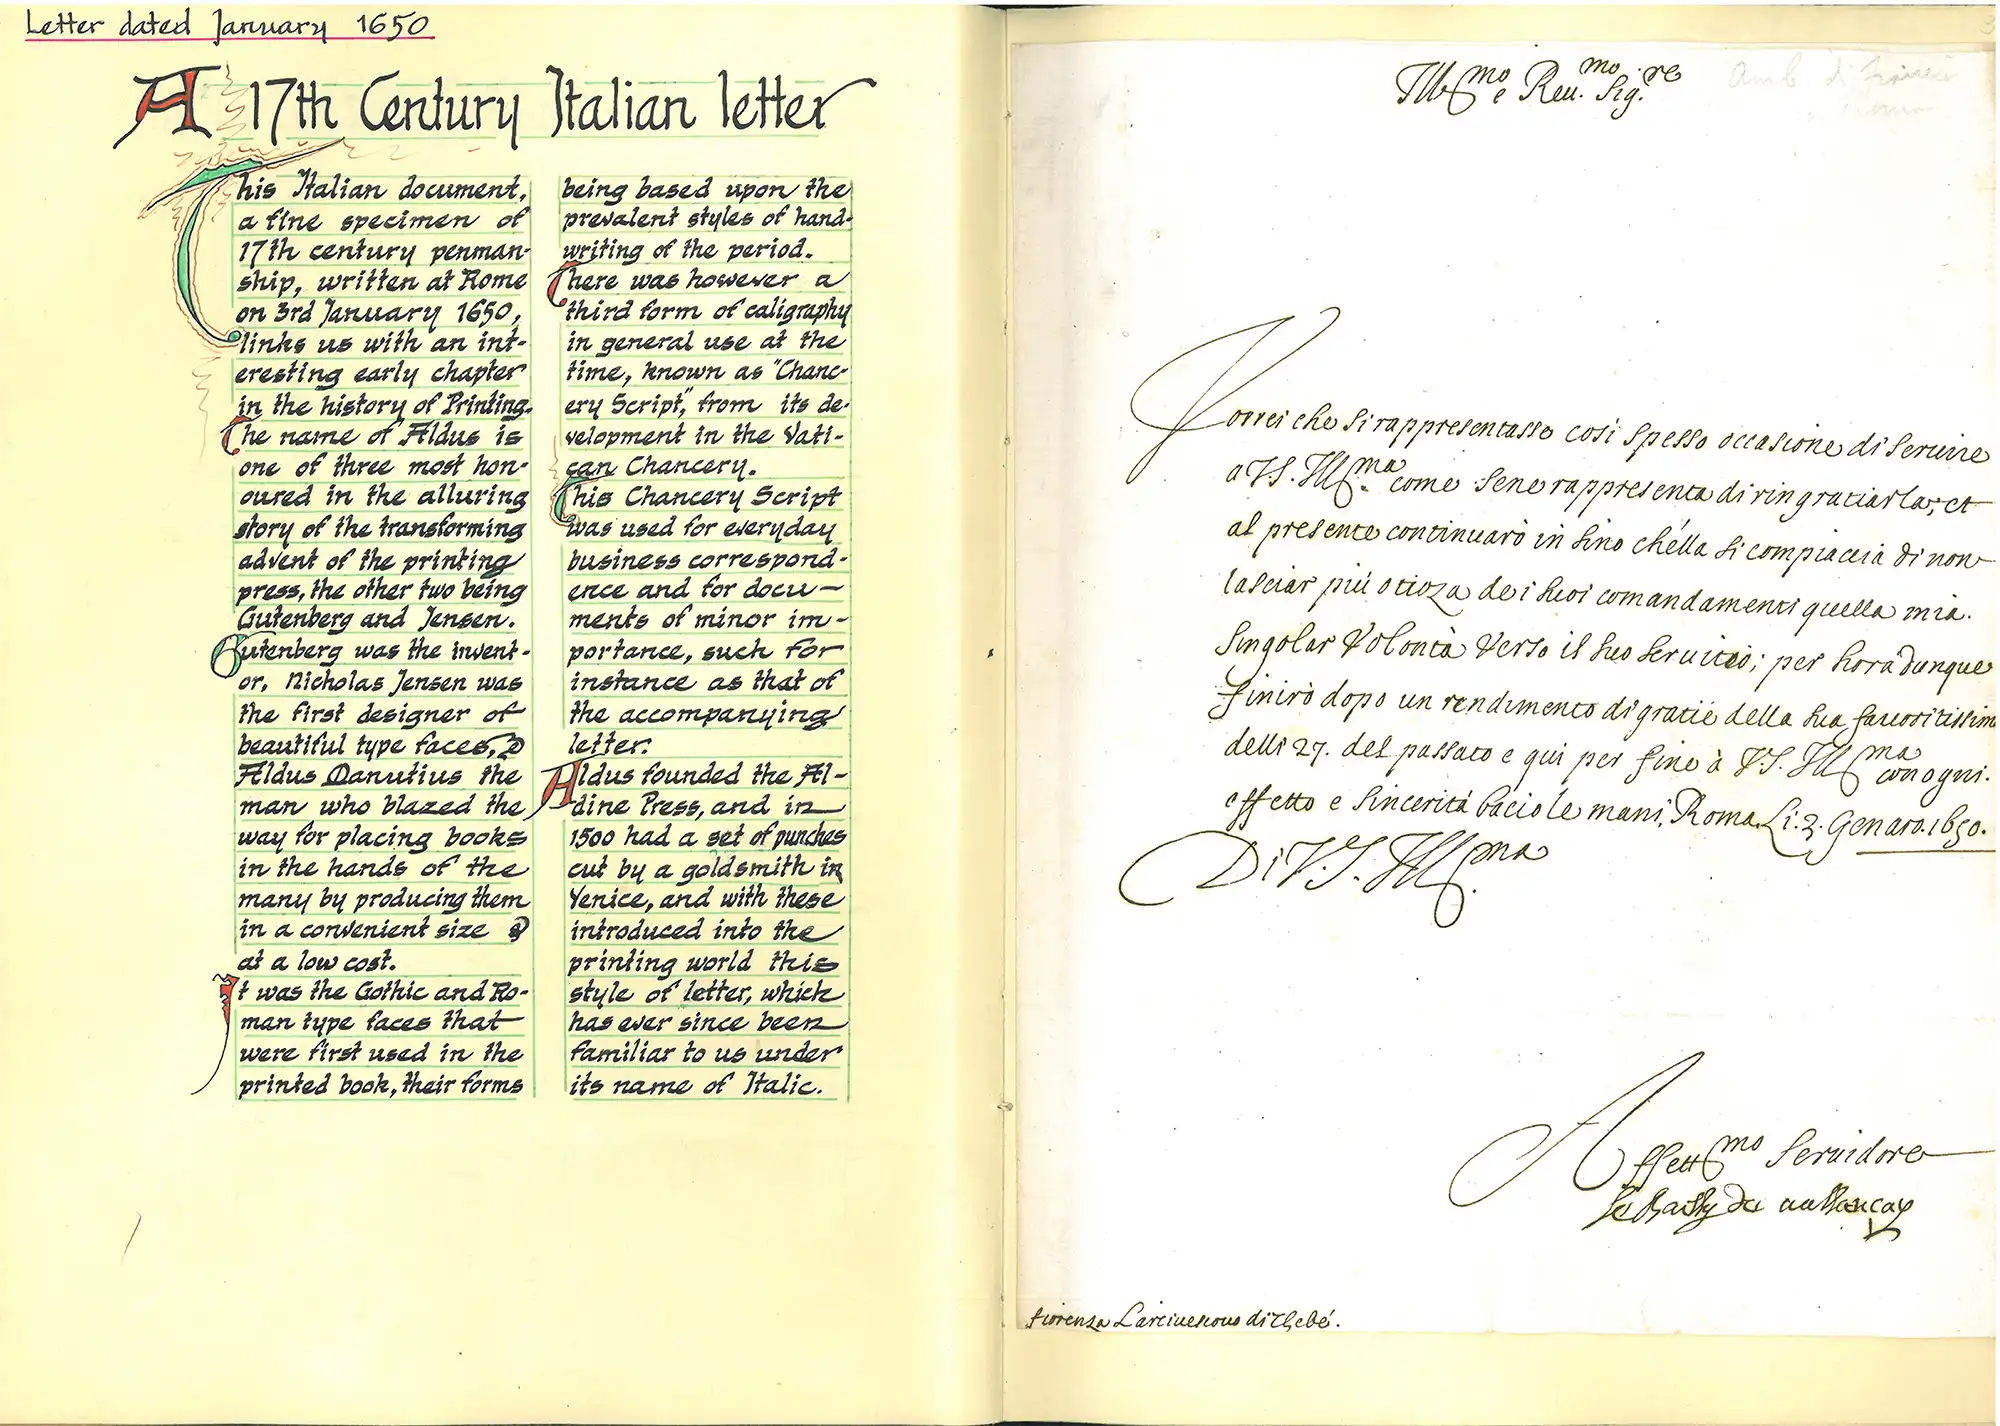 Letter dated January 1650
A 17th Century Italian letter
This Italian document,
a fine specimen of
17th century penman-
ship, written at Rome
on 3rd January 1650,
links us with an int-
eresting early chapter
in the history of Printing.
The name of Aldus is
one of three most hon-
oured in the alluring
story of the transforming
advent of the printing
press, the other two being
Gutenberg and Jensen.
Gutenberg was the invent-
or, Nicholas Jensen was
the first designer of
beautiful type faces, &
Aldus Manutius the
man who blazed the
way for placing books
in the hands of the
many by producing them
in a convenient size &
at a low cost.
It was the Gothic and Ro-
man type faces that
were first used in the
printed book, their forms
being based upon the
prevalent styles of hand-
writing of the period.
There was however a
third form of caligraphy
in general use at the
time, known as "Chanc-
ery Script", from its de-
velopment in the Vati-
can Chancery.
This Chancery Script
was used for everyday
business correspond-
ence and for docu-
ments of minor im-
portance, such for
instance as that of
the accompanying
letter.
Aldus founded the Al-
dine Press, and in
1500 had a set of punches
cut by a goldsmith in
Venice, and with these
introduced into the
printing world this
style of letter, which
has ever since been
familiar to us under
its name of Italic.
Ill.mo e Reu.mo Sig.re
Vorrei che si rappresentasse così spesso occasione di seruire
a V.S. Ill.ma come se ne rappresenta di ringratiarla; et
al presente continuarò in sino ch'ella si compiaccia di non
lasciar più otioza de i suoi comandamenti quella mia
singolar Volontà verso il suo seruitio; per hora dunque
finirò dopo un rendimento di gratie della sua fauoritissim
delli 27. del passato e qui per fine à V.S. Ill.ma con ogni
effetto e sincerità bacio le mani. Roma Li. 3. Genaro. 1650.
Di V.S. Ill.ma
Affett.mo Seruidore
Fiorenza L'arciuescouo di Thebé.